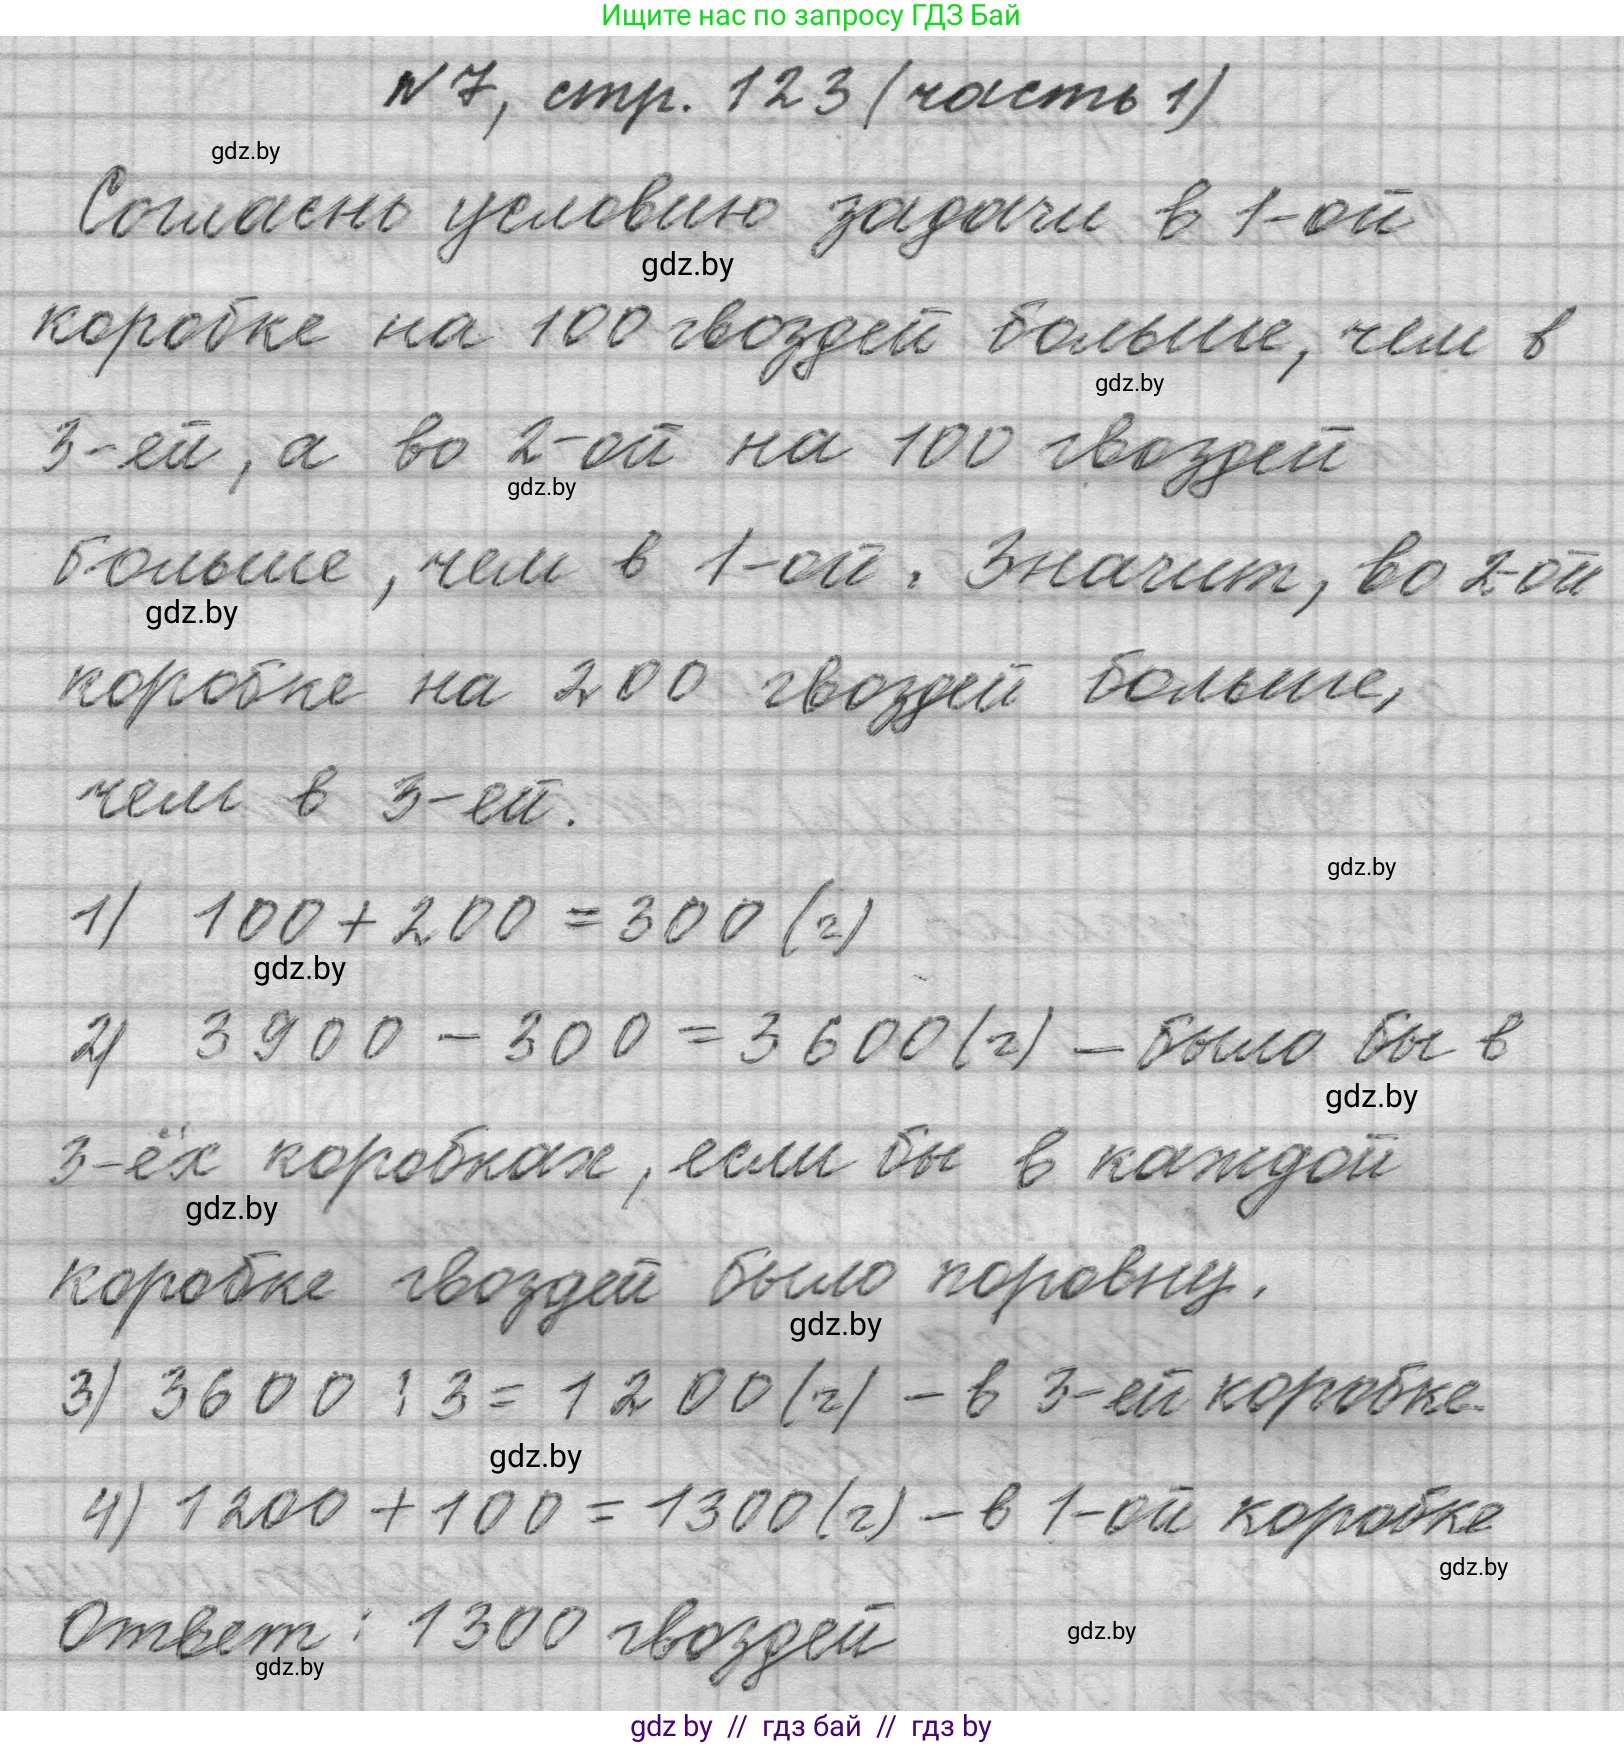 Ищите нас по запросу ГДЗ Бай
№7, стр. 123 (часть 1)
gdz.by
Согласно условию задачи в 1-ой
gdz.by
коробке на 100 гвоздей больше, чем в
gdz.by
3-ей, а во 2-ой на 100 гвоздей
gdz.by
больше, чем в 1-ой. Значит, во 2-ой
gdz.by
коробке на 200 гвоздей больше,
чем в 3-ей.
gdz.by
1) 100 + 200 = 300 (г)
gdz.by
2) 3900 - 300 = 3600 (г) - было бы в
gdz.by
3-ёх коробках, если бы в каждой
gdz.by
коробке гвоздей было поровну.
gdz.by
3) 3600 : 3 = 1200 (г) - в 3-ей коробке.
gdz.by
4) 1200 + 100 = 1300 (г) - в 1-ой коробке
gdz.by
Ответ: 1300 гвоздей
gdz.by
gdz.by
gdz by // гдз бай // гдз by